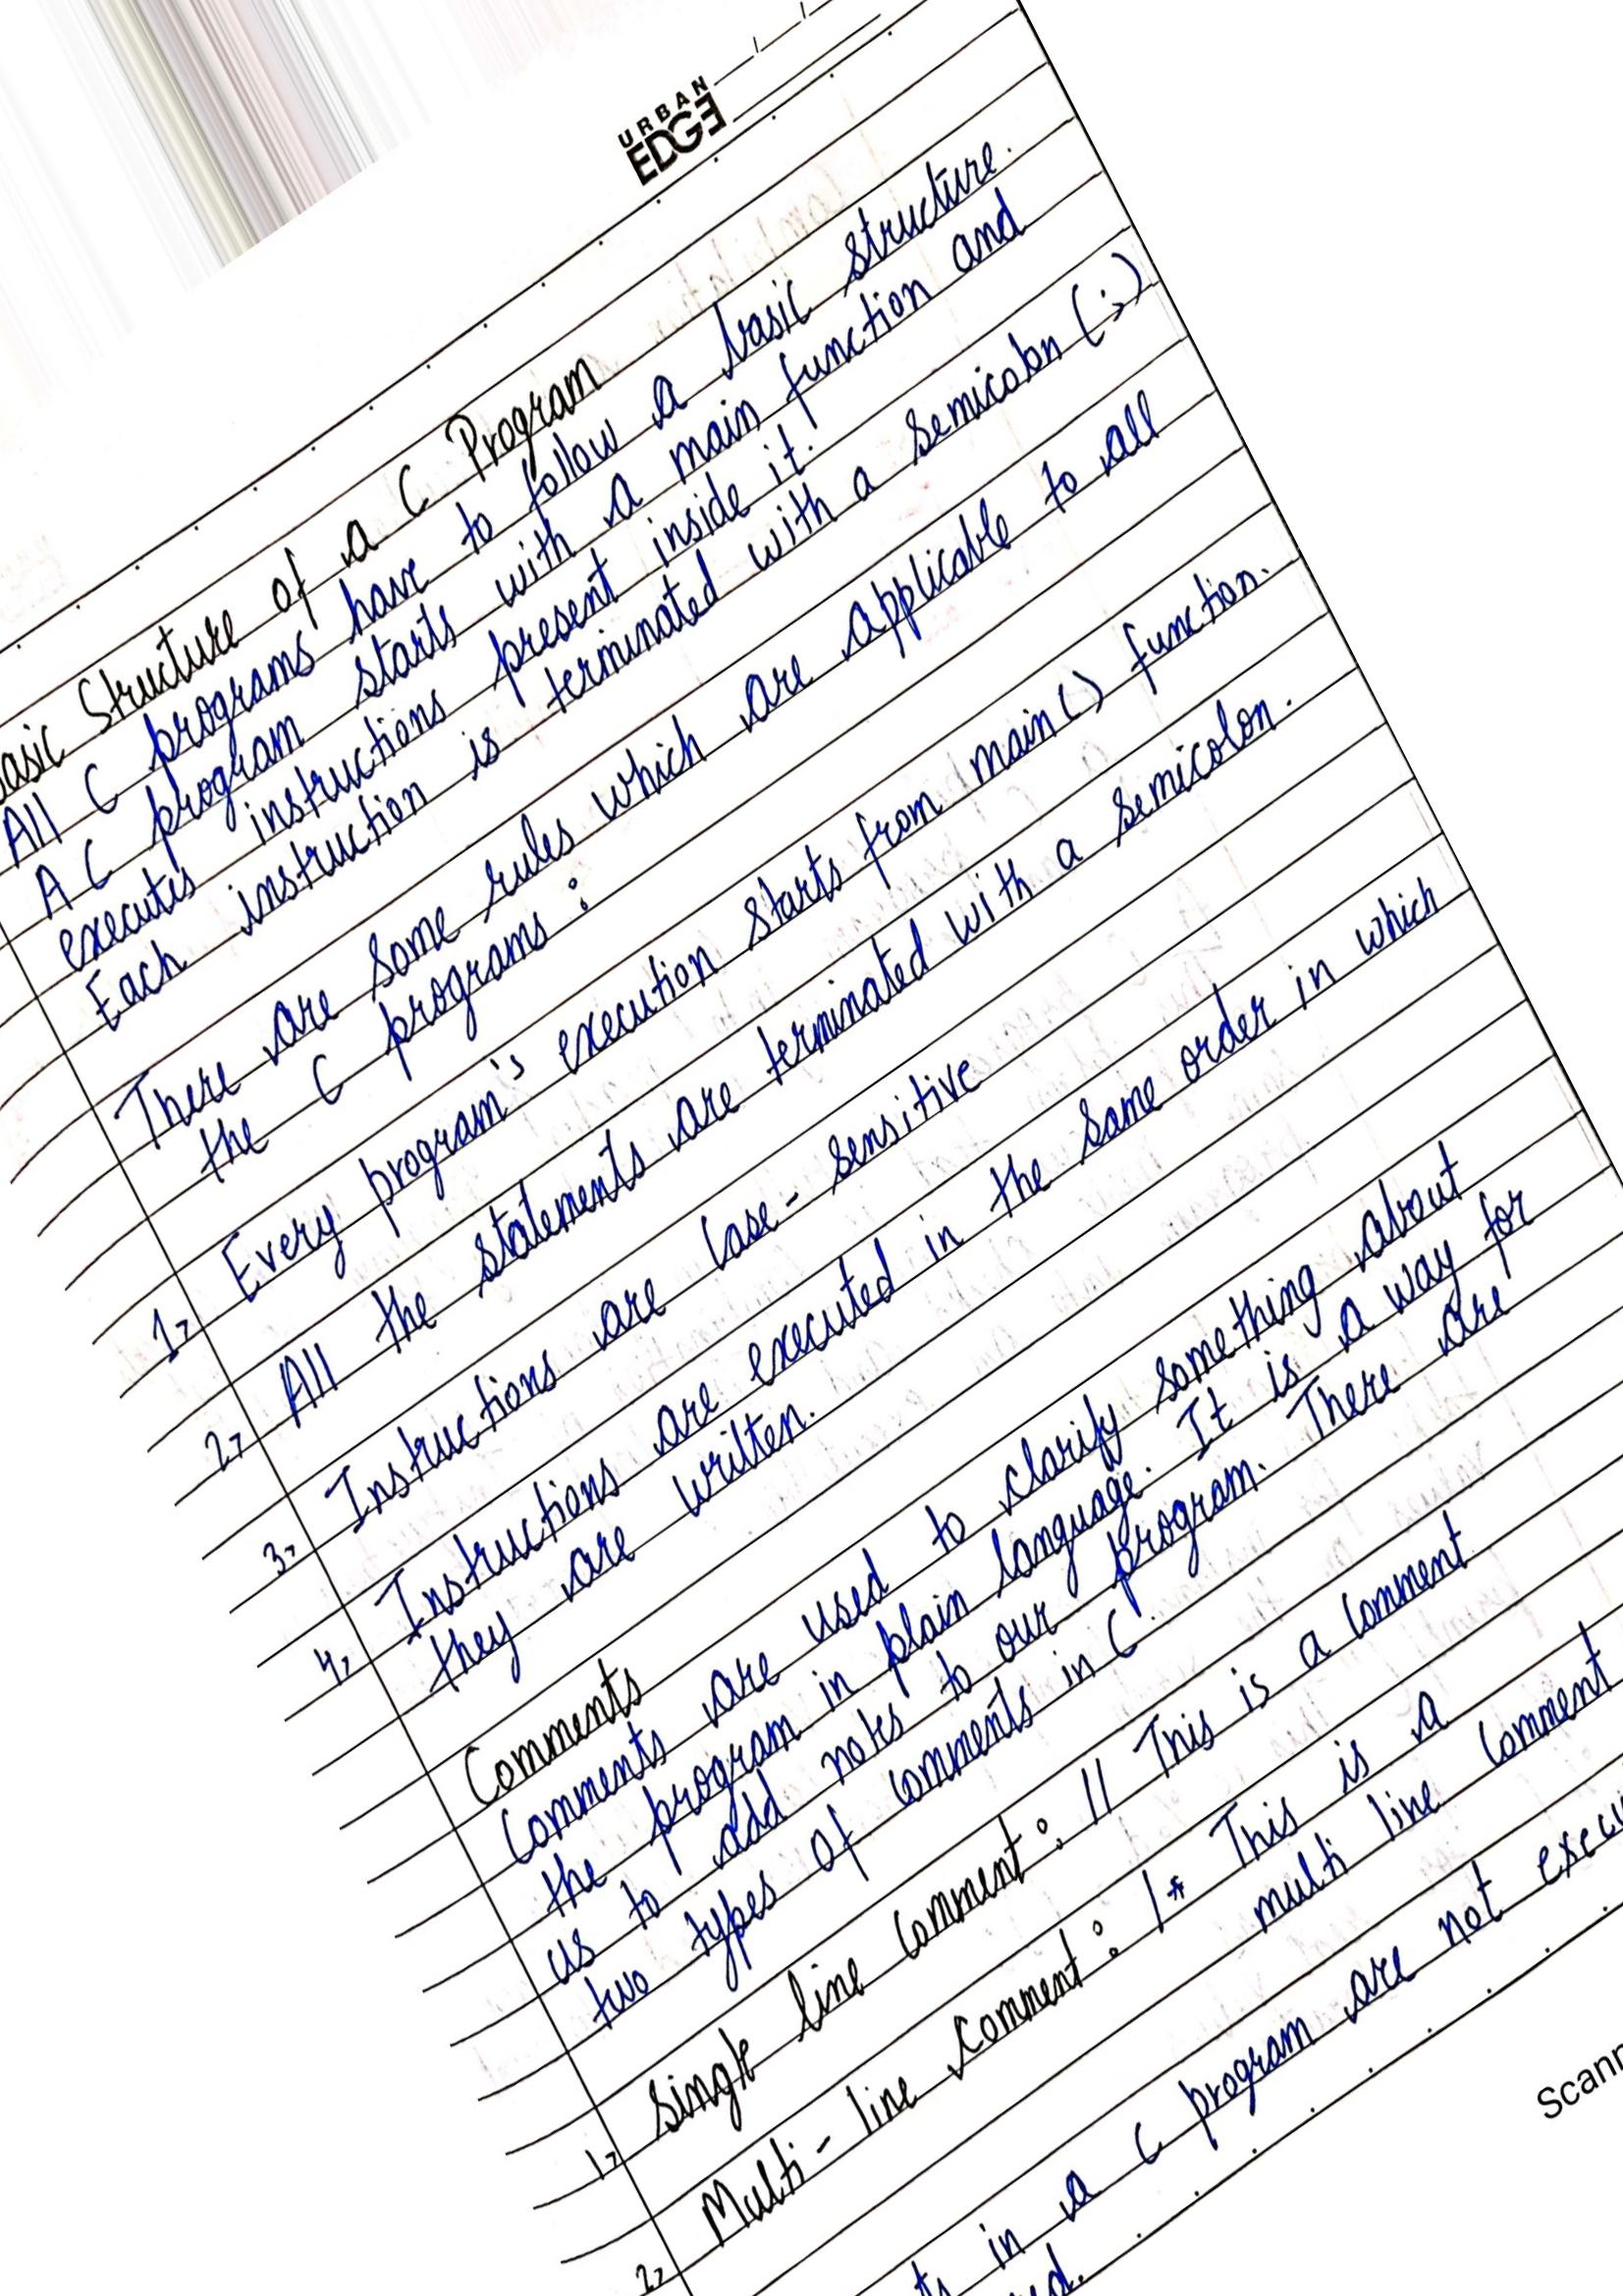 URBAN
EDGE
Basic Structure of a C Program
All C programs have to follow a basic structure.
A C program starts with a main function and
executes instructions present inside it.
Each instruction is terminated with a semicolon (;)
There are some rules which are applicable to all
the C programs :
1. Every program's execution starts from main() function.
2. All the statements are terminated with a semicolon.
3. Instructions are case-sensitive
4. Instructions are executed in the same order in which
they are written.
Comments
Comments are used to clarify something about
the program in plain language. It is a way for
us to add notes to our program. There are
two types of comments in C.
1. Single line comment : // This is a comment
2. Multi-line comment : /* This is a
multi line comment
in a C program are not